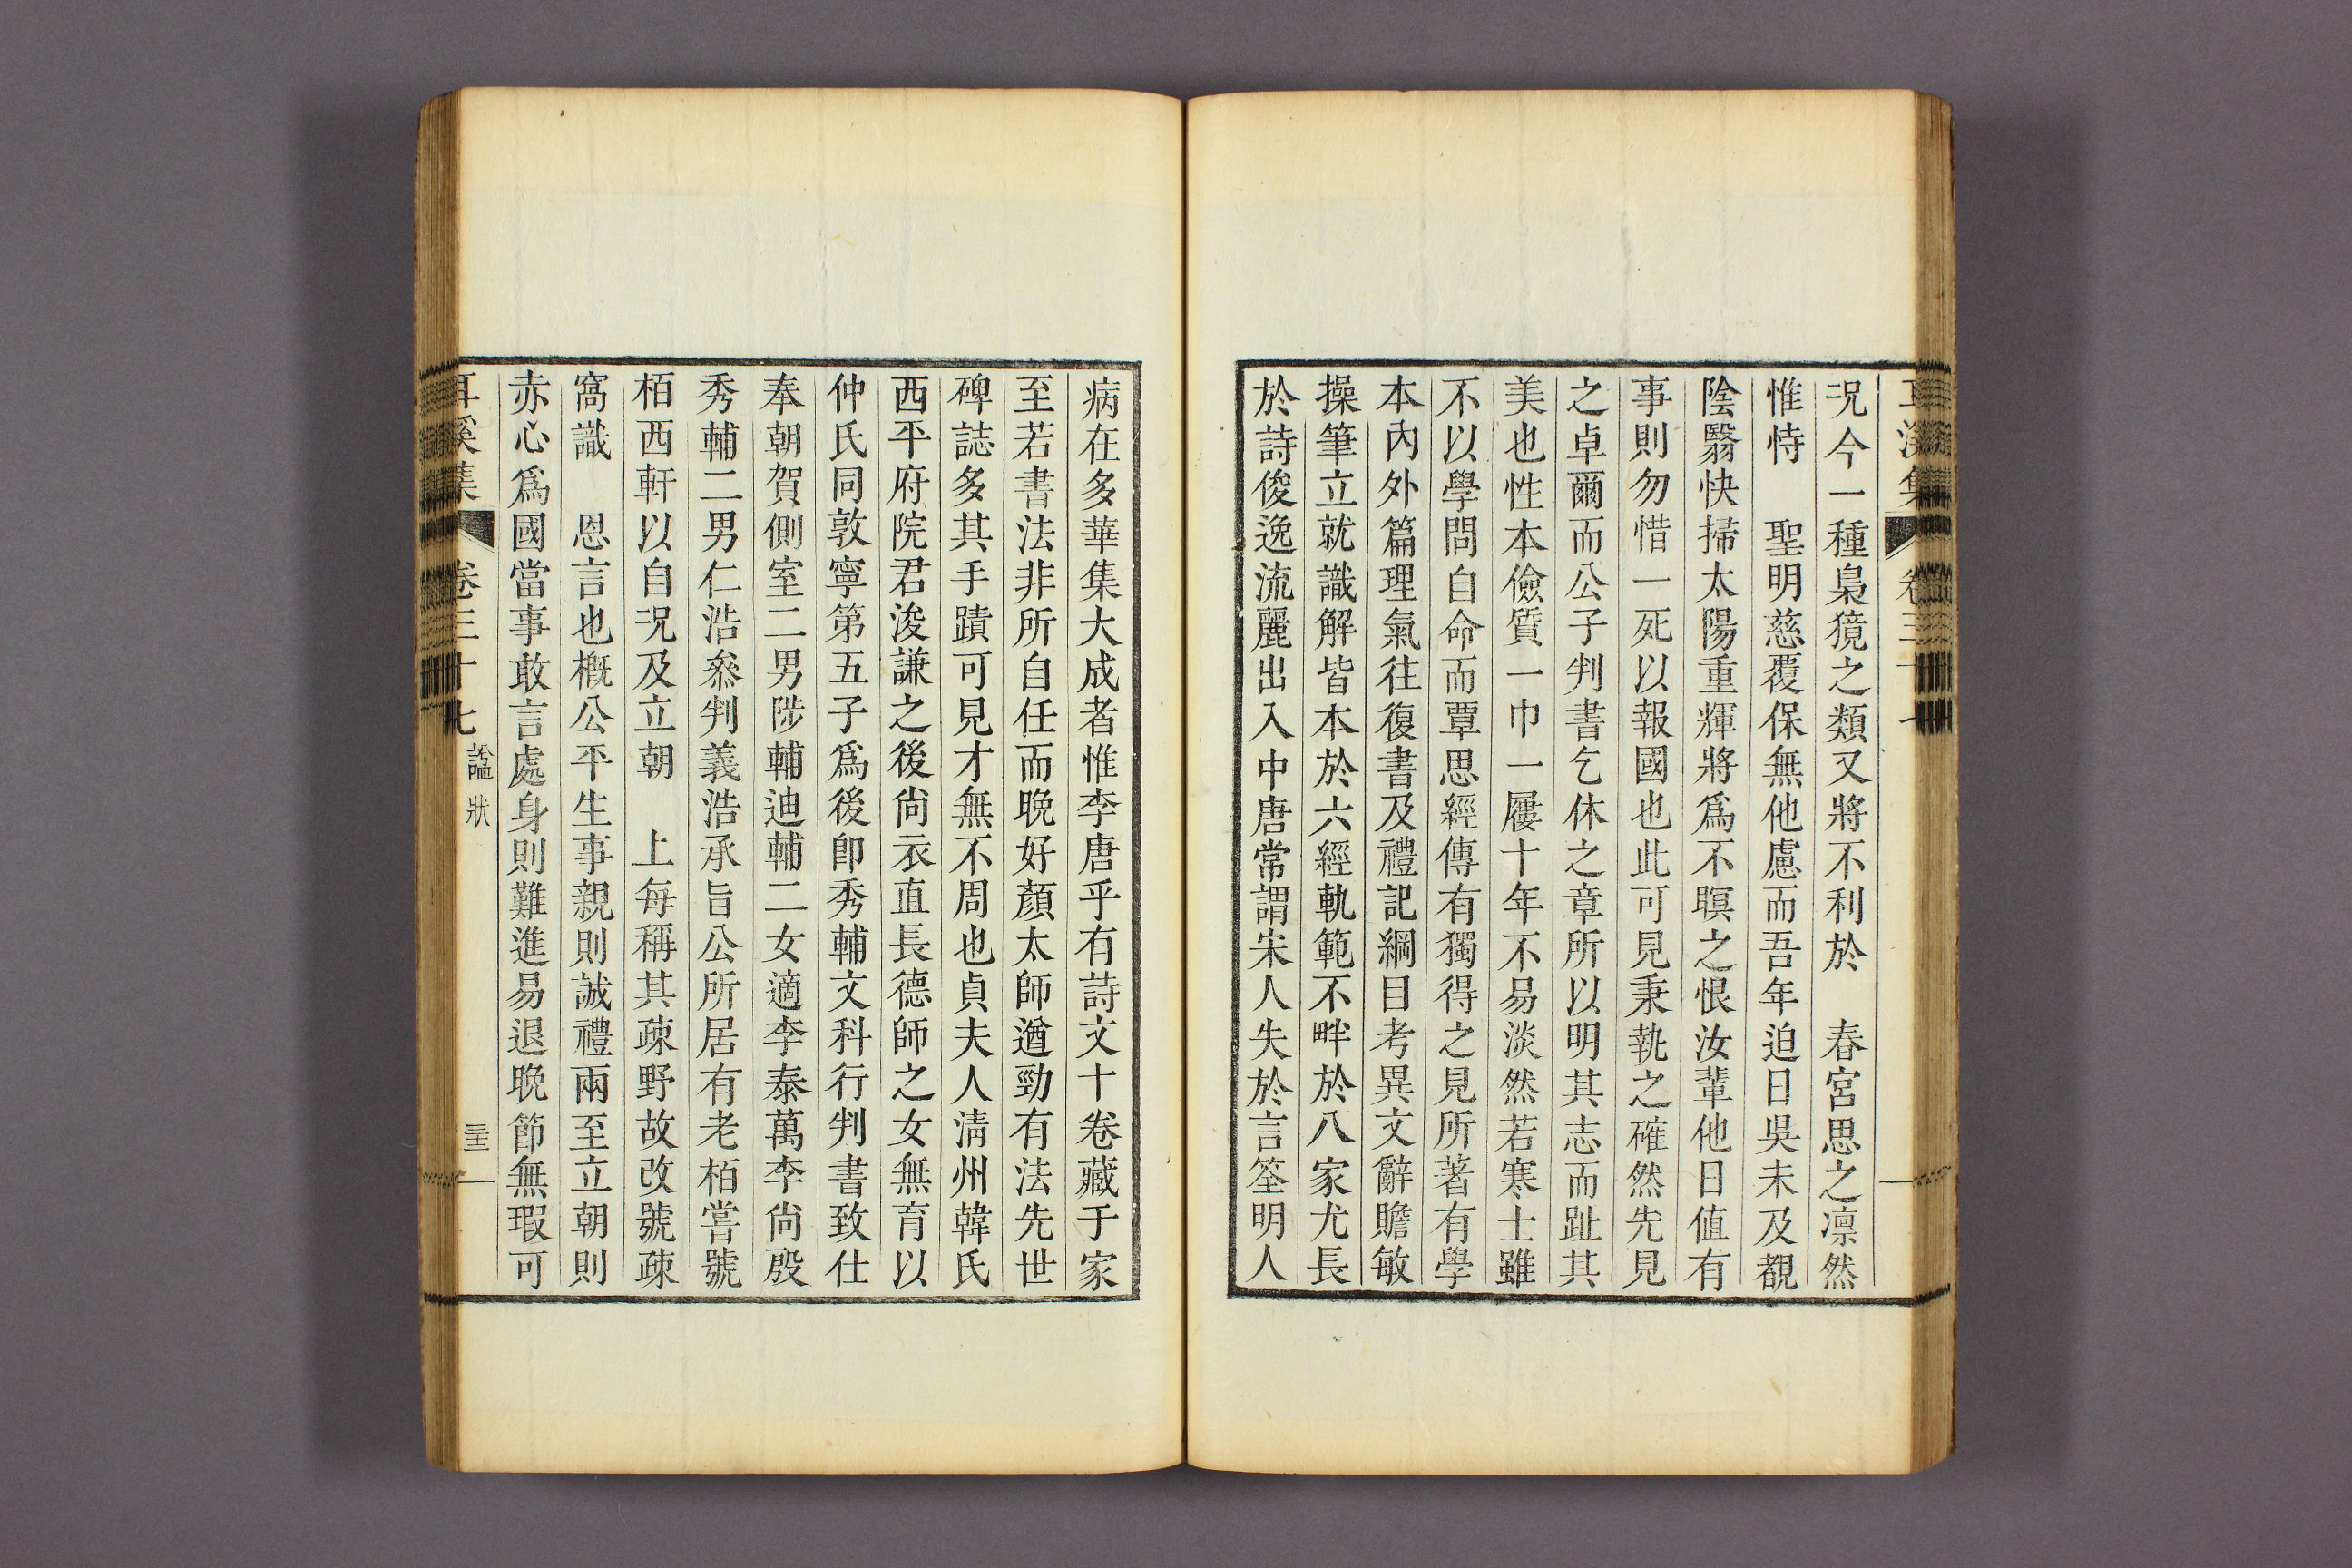 况今一種梟獍之類又將不利於　春宮思之凛然
惟恃　聖明慈覆保無他慮而吾年迫日吳未及覩
陰翳快掃太陽重輝將爲不瞑之恨汝輩他日値有
事則勿惜一死以報國也此可見秉執之確然先見
之卓爾而公子判書乞休之章所以明其志而趾其
美也性本儉質一巾一屨十年不易淡然若寒士雖
不以學問自命而覃思經傳有獨得之見所著有學
本內外篇理氣往復書及禮記綱目考異文辭贍敏
操筆立就識解皆本於六經軌範不畔於八家尤長
於詩俊逸流麗出入中唐常謂宋人失於言筌明人
病在多華集大成者惟李唐乎有詩文十卷藏于家
至若書法非所自任而晩好顏太師遒勁有法先世
碑誌多其手蹟可見才無不周也貞夫人淸州韓氏
西平府院君浚謙之後尙衣直長德師之女無育以
仲氏同敦寧第五子爲後卽秀輔文科行判書致仕
奉朝賀側室二男陟輔迪輔二女適李泰萬李尙殷
秀輔二男仁浩叅判義浩承旨公所居有老栢嘗號
栢西軒以自況及立朝　上每稱其疎野故改號疎
窩識　恩言也槪公平生事親則誠禮兩至立朝則
赤心爲國當事敢言處身則難進易退晩節無瑕可
耳溪集　卷三十七　諡狀　三十三